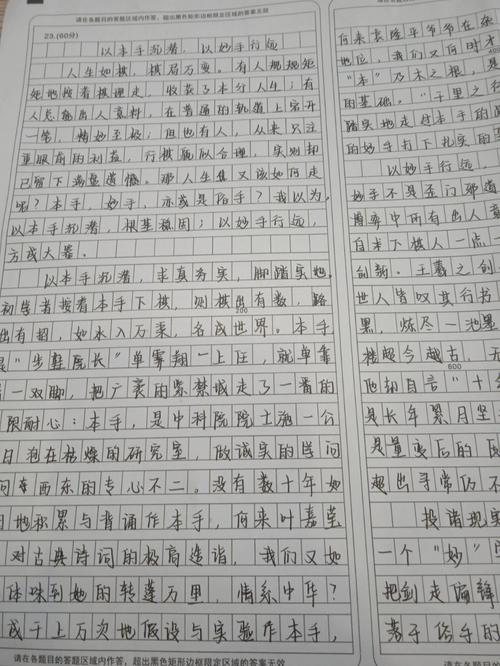 请在各题目的答题区域内作答，超出黑色矩形边框限定区域的答案无效
23.(60分)
以本手沉潜，以妙手行远
人生如棋，棋局万变。有人规规矩
矩地按着棋理走，收获了本分人生；有
人总能出人意料，在普通的轨道上宕开
一笔，精妙至极；但也有人，从来只注
重眼前的利益，行棋貌似合理，实则却
已留下满盘遗憾。那人生集又该如何走
呢？本手，妙手，亦或是俗手？我以为，
以本手沉潜，根基稳固；以妙手行远，
方成大器。
以本手沉潜，求真务实，脚踏实地。
初学者按着本手下棋，则棋出有数，路
出有招，如水入万来，名成世界。本手，
是“步鞋院长”单霁翔一上任，就单靠
一双脚，把广袤的紫禁城走了一番的
限耐心；本手，是中科院院士施一公
日泡在枯燥的研究室，做诚实的学问
问东西东的专心不二。没有数十年如
日地积累与背诵作本手，何来叶嘉莹
对古典诗词的极高造诣，我们又如
体味到她的转蓬万里 情系中华？
成千上万次地假设与实验作本手，
200
请在各题目的答题区域内作答，超出黑色矩形边框限定区域的答案无效
请在各题目的答题区域内作答，超出黑色矩形边框
何来袁隆平爷爷在
地位，我们又何时才
400
“本”乃木之根，是
的基础。“千里之行
踏实地走过本手的
的妙手打下扎实的
以妙手行远，
妙手不是歪门邪道
博弈中所有出人意
自来下棋人一点
创新。王羲之创
世人皆叹其行书
黑，炼尽一池墨
楼超今越古，无
600
他却自言“十
是长年累月坚
是量变后的
超出寻常仍不
投诸现实
一个“妙”
把剑走偏锋
着于俗手的
请在各题目的答题区域内作答，超出黑色